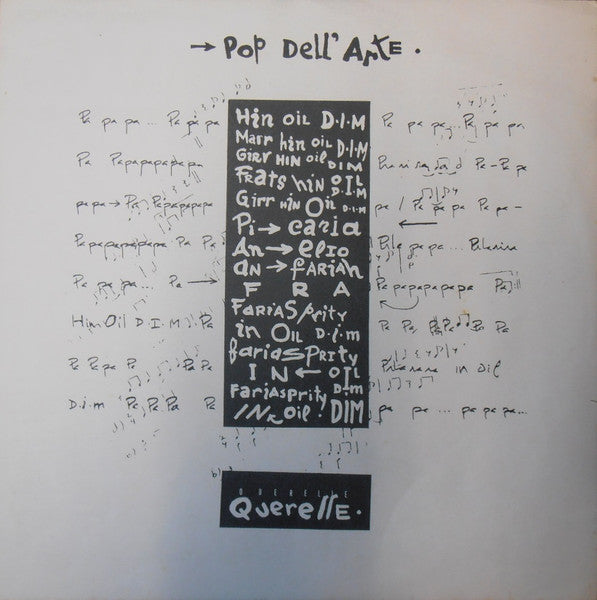 → Pop Dell'Arte .
Pa pa pa ... Pa pa pa
Pa Papapapapapa
papa → Pa Papapapapa
Papapapapapa Pa Pa
Pa pa pa ... Pa →
Hin Oil D.I.M. Pa
Pa Papa Pa Pa Pa
D.i.m Pa Pa Pa Pa
Hin oil D.I.M
Marr hin oil D.I.M
Girr HIN oil DIM
Frats hin OIL D.I.M
Girr HiN Oil D.I.M
Pi → caria
An → elio
an → fariah
F R A
Farias Prity
in Oil D.i.m
farias Prity
I N ← OIL
Fariasprity Dim
IN Oil DIM
Pa pa pa ... Pa pa pa
Pa - Pa pa
pa / Pa pa pa Pa -
←
pa pa ...
Papapapapapa Pa
Pa Pa Pa Pa Pa
in oil
pa pa ... pa pa pa ...
QUERELLE
Querelle .